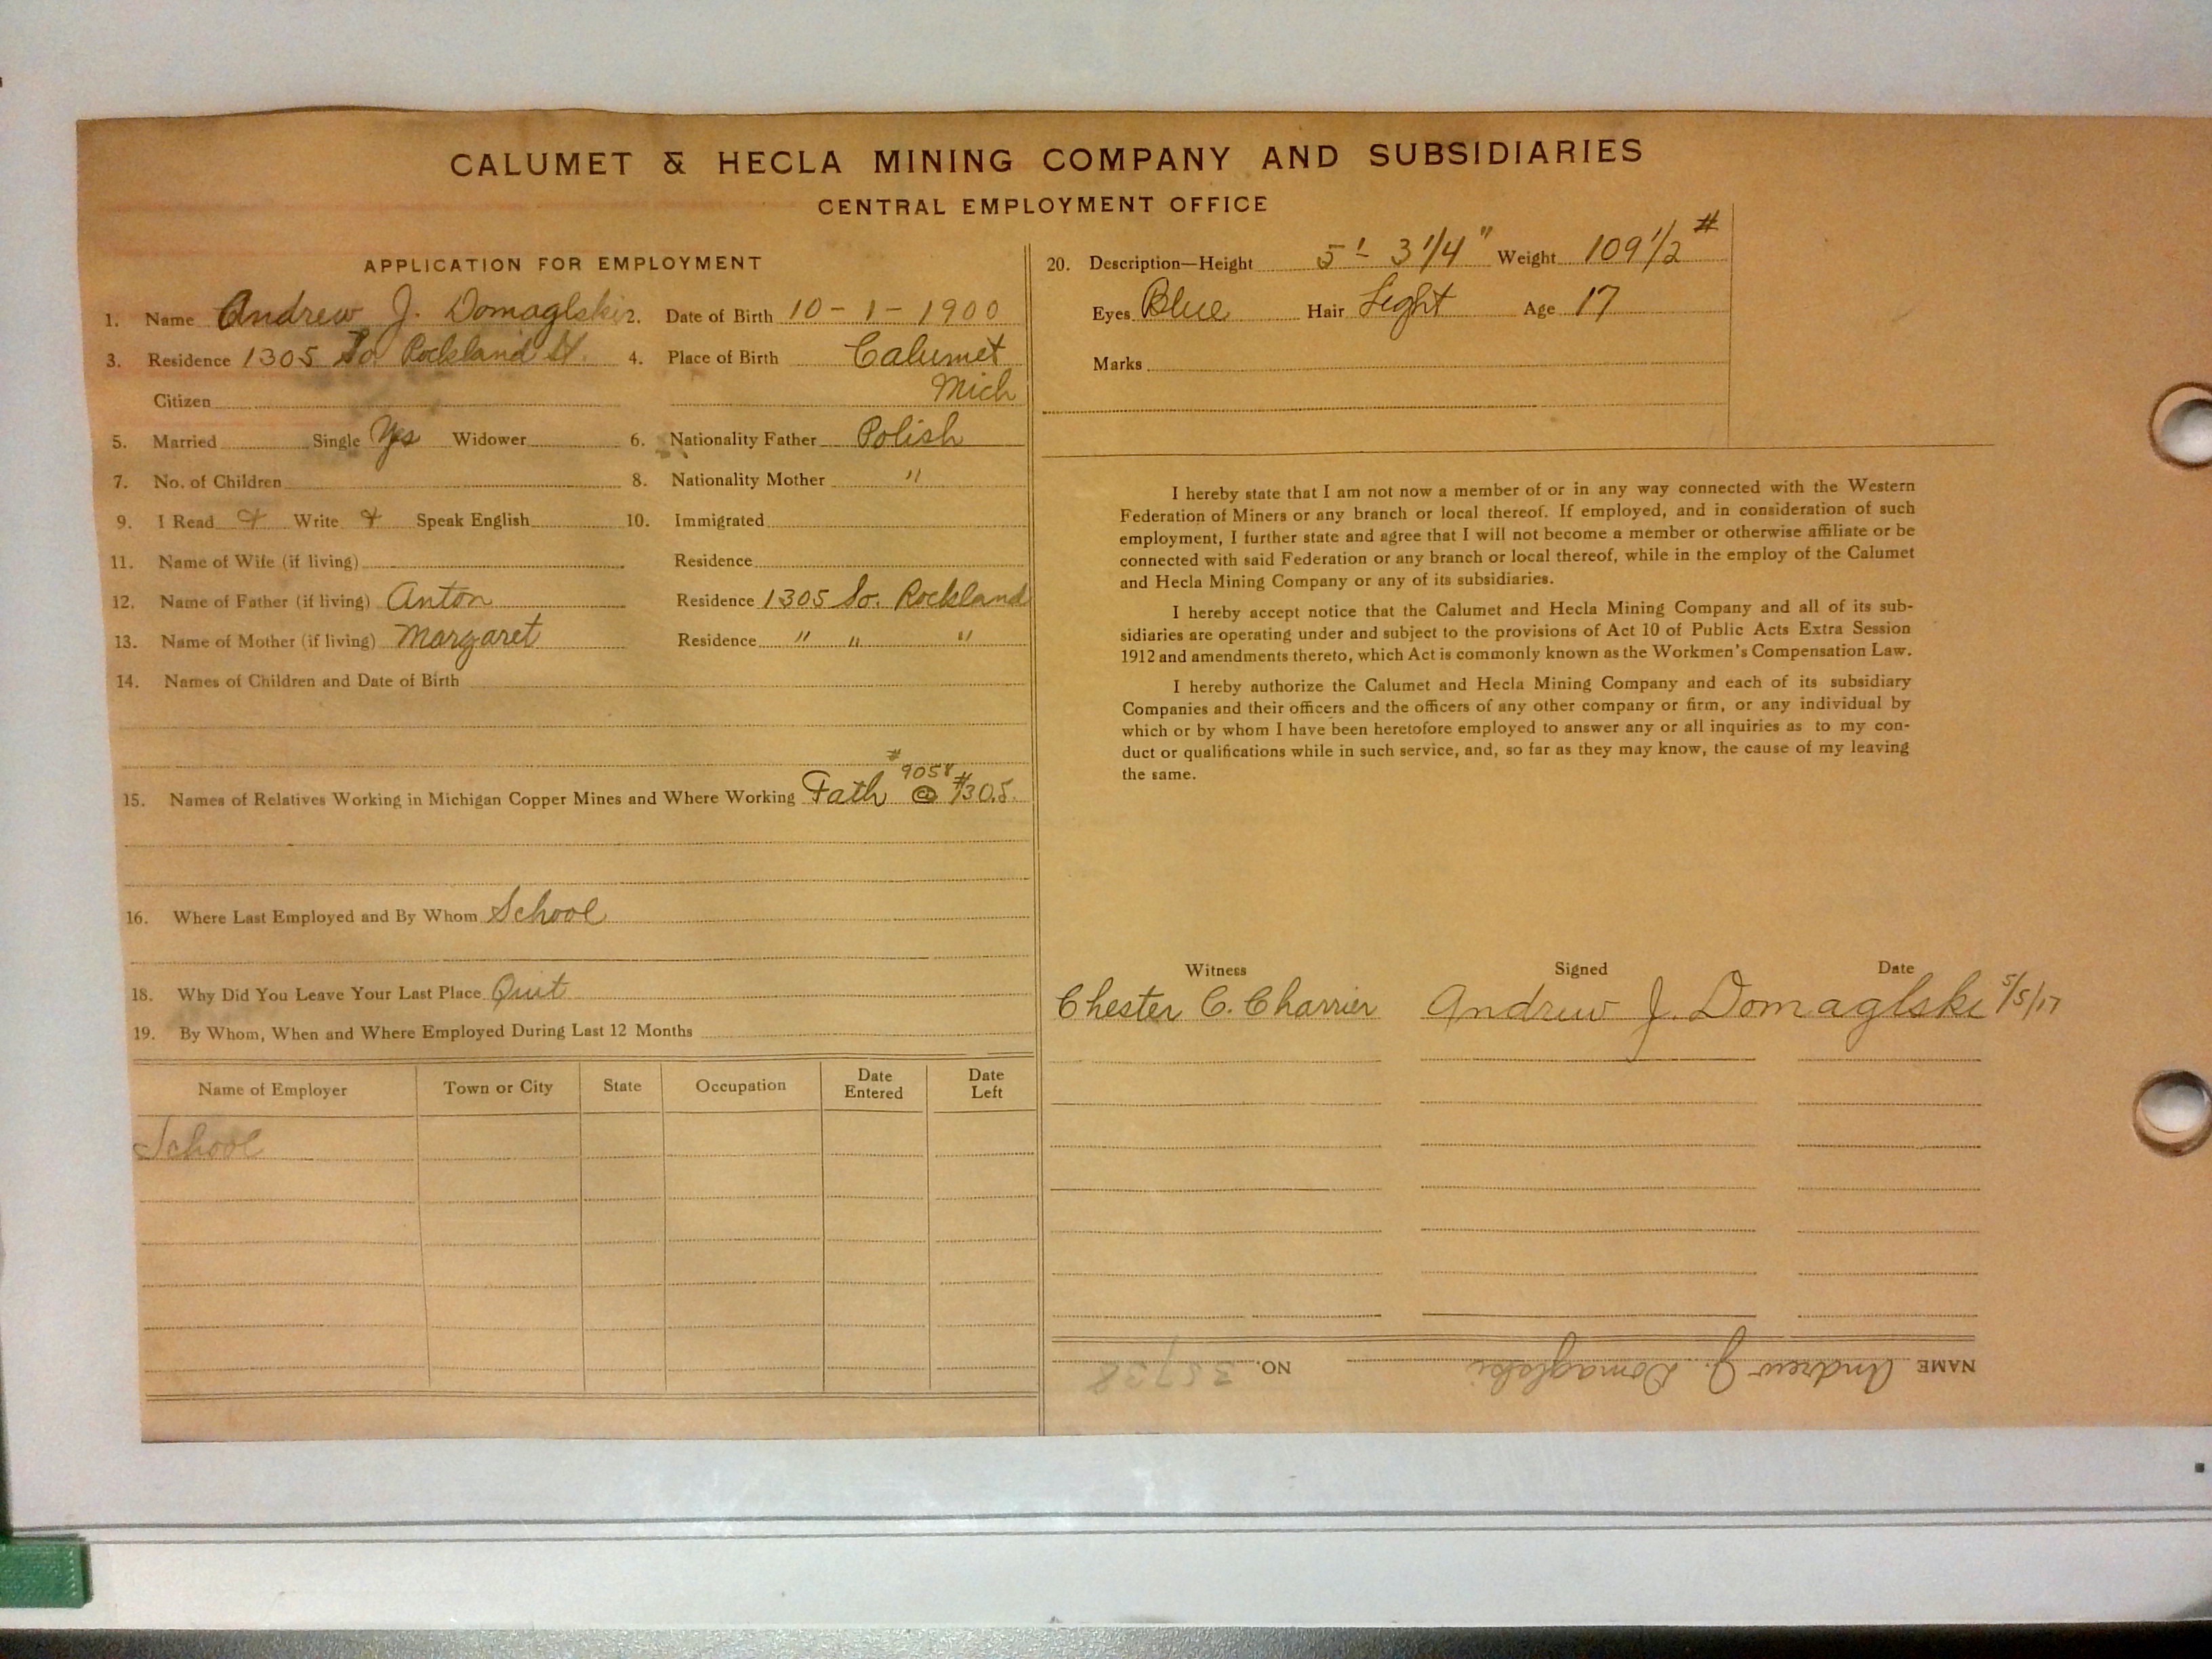 CALUMET & HECLA MINING COMPANY AND SUBSIDIARIES
CENTRAL EMPLOYMENT OFFICE
APPLICATION FOR EMPLOYMENT
1. Name Andrew J. Domaglski 2. Date of Birth 10-1-1900
3. Residence 1305 So. Rockland St. 4. Place of Birth Calumet
Citizen Mich
5. Married Single Yes Widower 6. Nationality Father Polish
7. No. of Children 8. Nationality Mother "
9. I Read Write Speak English 10. Immigrated
11. Name of Wife (if living) Residence
12. Name of Father (if living) Anton Residence 1305 So. Rockland
13. Name of Mother (if living) Margaret Residence " " "
14. Names of Children and Date of Birth
#
15. Names of Relatives Working in Michigan Copper Mines and Where Working Fath @
16. Where Last Employed and By Whom School
18. Why Did You Leave Your Last Place Quit
19. By Whom, When and Where Employed During Last 12 Months
Name of Employer Town or City State Occupation Date Entered Date Left
School
20. Description—Height 5'- 3 1/4" Weight 109 1/2 #
Eyes Blue Hair Light Age 17
Marks
I hereby state that I am not now a member of or in any way connected with the Western
Federation of Miners or any branch or local thereof. If employed, and in consideration of such
employment, I further state and agree that I will not become a member or otherwise affiliate or be
connected with said Federation or any branch or local thereof, while in the employ of the Calumet
and Hecla Mining Company or any of its subsidiaries.
I hereby accept notice that the Calumet and Hecla Mining Company and all of its sub-
sidiaries are operating under and subject to the provisions of Act 10 of Public Acts Extra Session
1912 and amendments thereto, which Act is commonly known as the Workmen's Compensation Law.
I hereby authorize the Calumet and Hecla Mining Company and each of its subsidiary
Companies and their officers and the officers of any other company or firm, or any individual by
which or by whom I have been heretofore employed to answer any or all inquiries as to my con-
duct or qualifications while in such service, and, so far as they may know, the cause of my leaving
the same.
Witness Signed Date
Chester C. Charrier Andrew J. Domaglski 5/5/17
NAME Andrew J. Domaglski NO. 35738